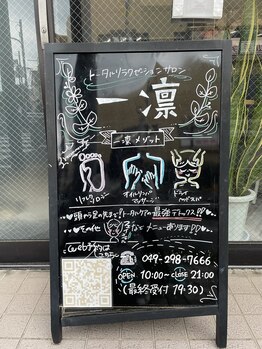 トータルリラクゼーションサロン
一凛
一凛メソッド
リンパ
オイルリンパ
マッサージ
ドライ
ヘッドスパ
頭から足の先まで!トータルケアの最強デトックス
メニューあります
Web予約は
こちら
049-298-7666
OPEN 10:00〜CLOSE 21:00
(最終受付 19:30)